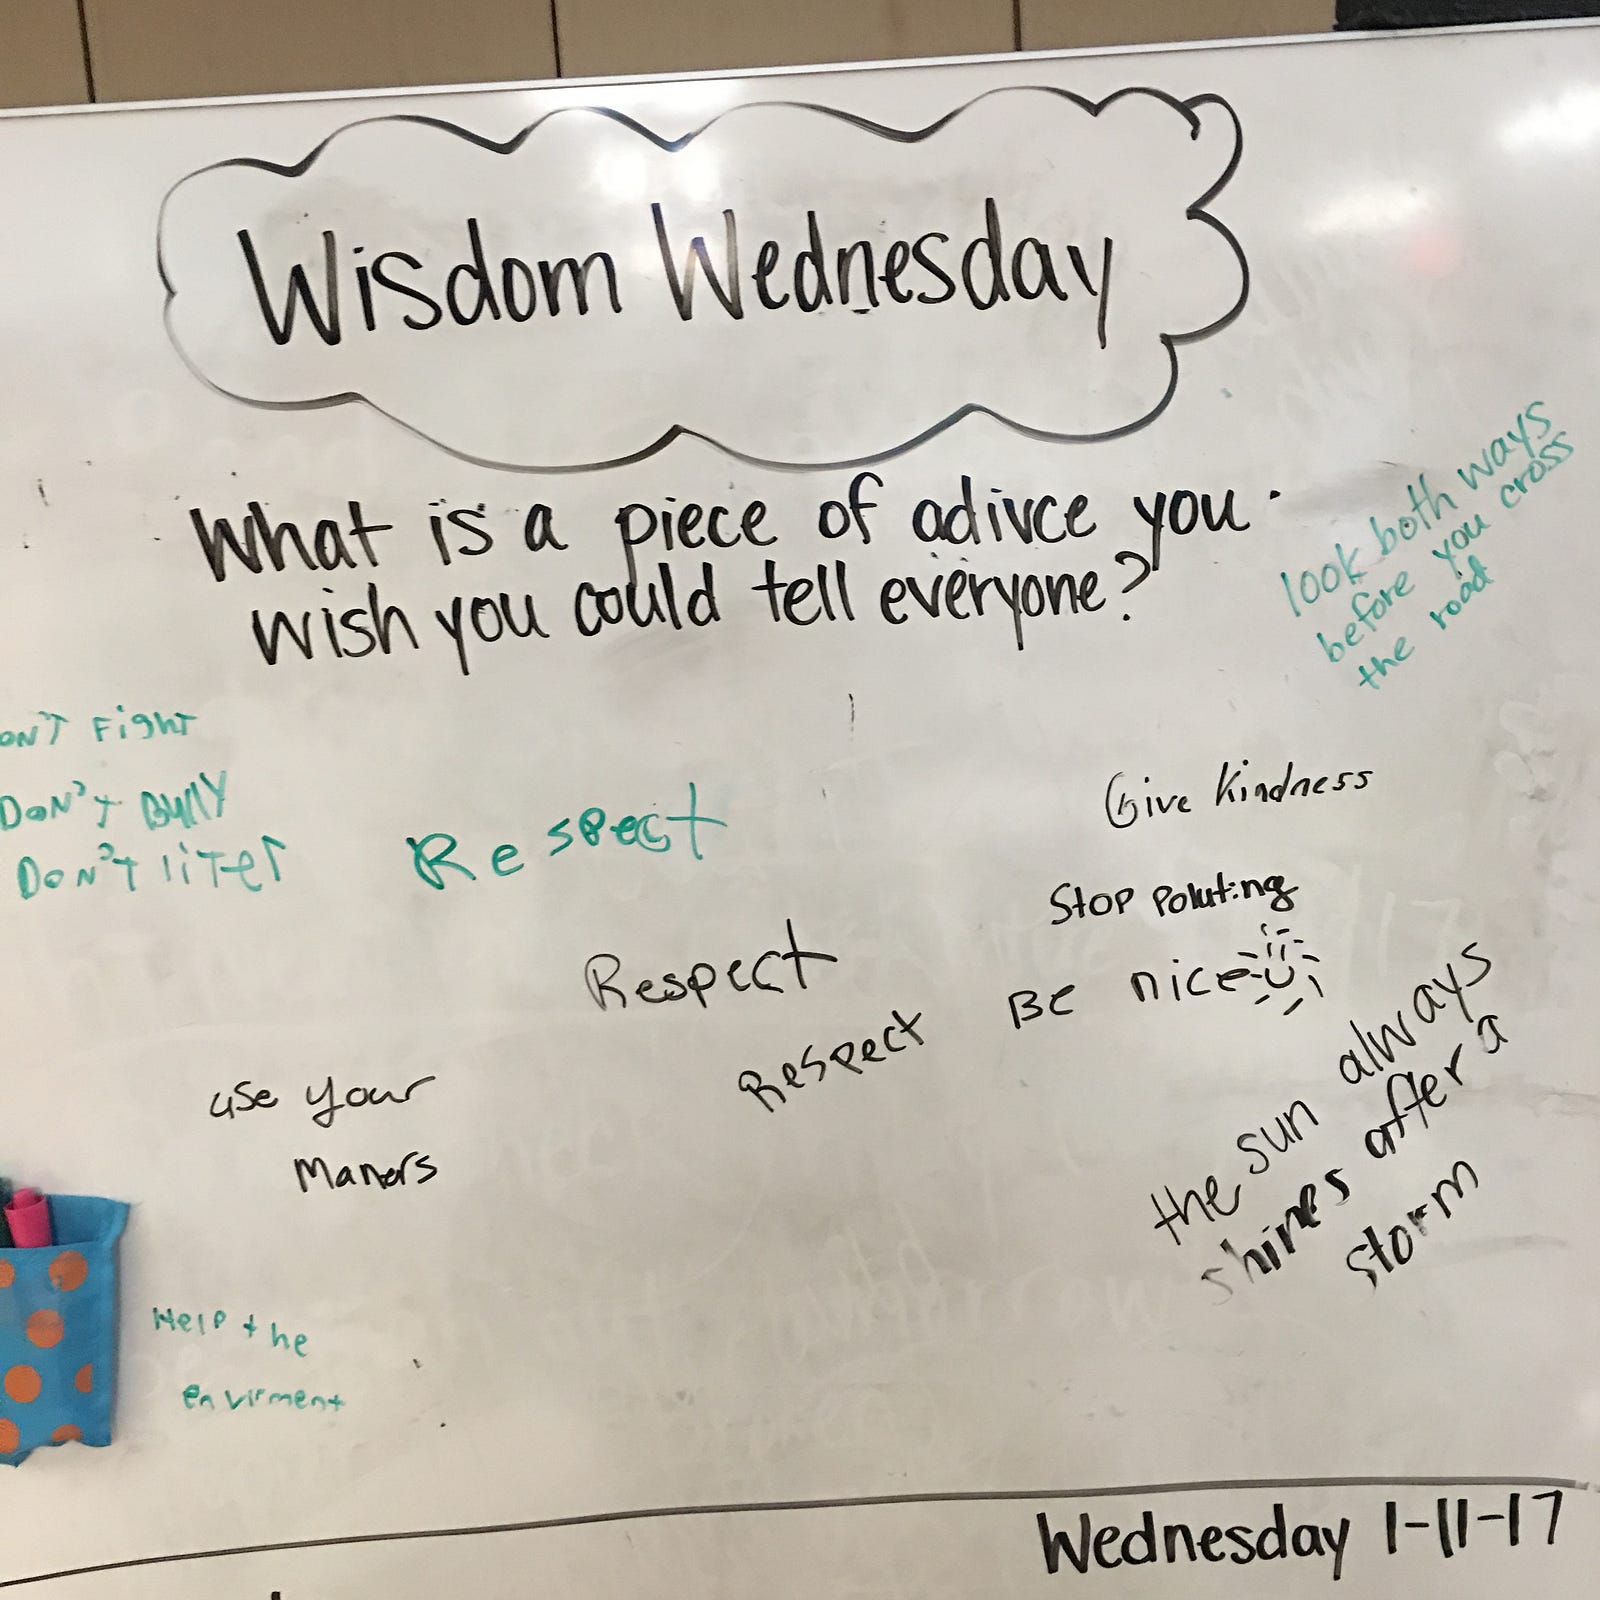 Wisdom Wednesday
What is a piece of adivce you
wish you could tell everyone?
look both ways
before you cross
the road
ON'T FighT
DON'T BUllY
DON'T liTer
Respect
Give Kindness
Stop Poluting
Respect
BE nice
Respect
the sun always
shines after a
storm
use your
Maners
Help the
envirment
Wednesday 1-11-17